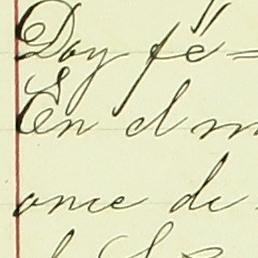 Doy fé =
En el m
once de